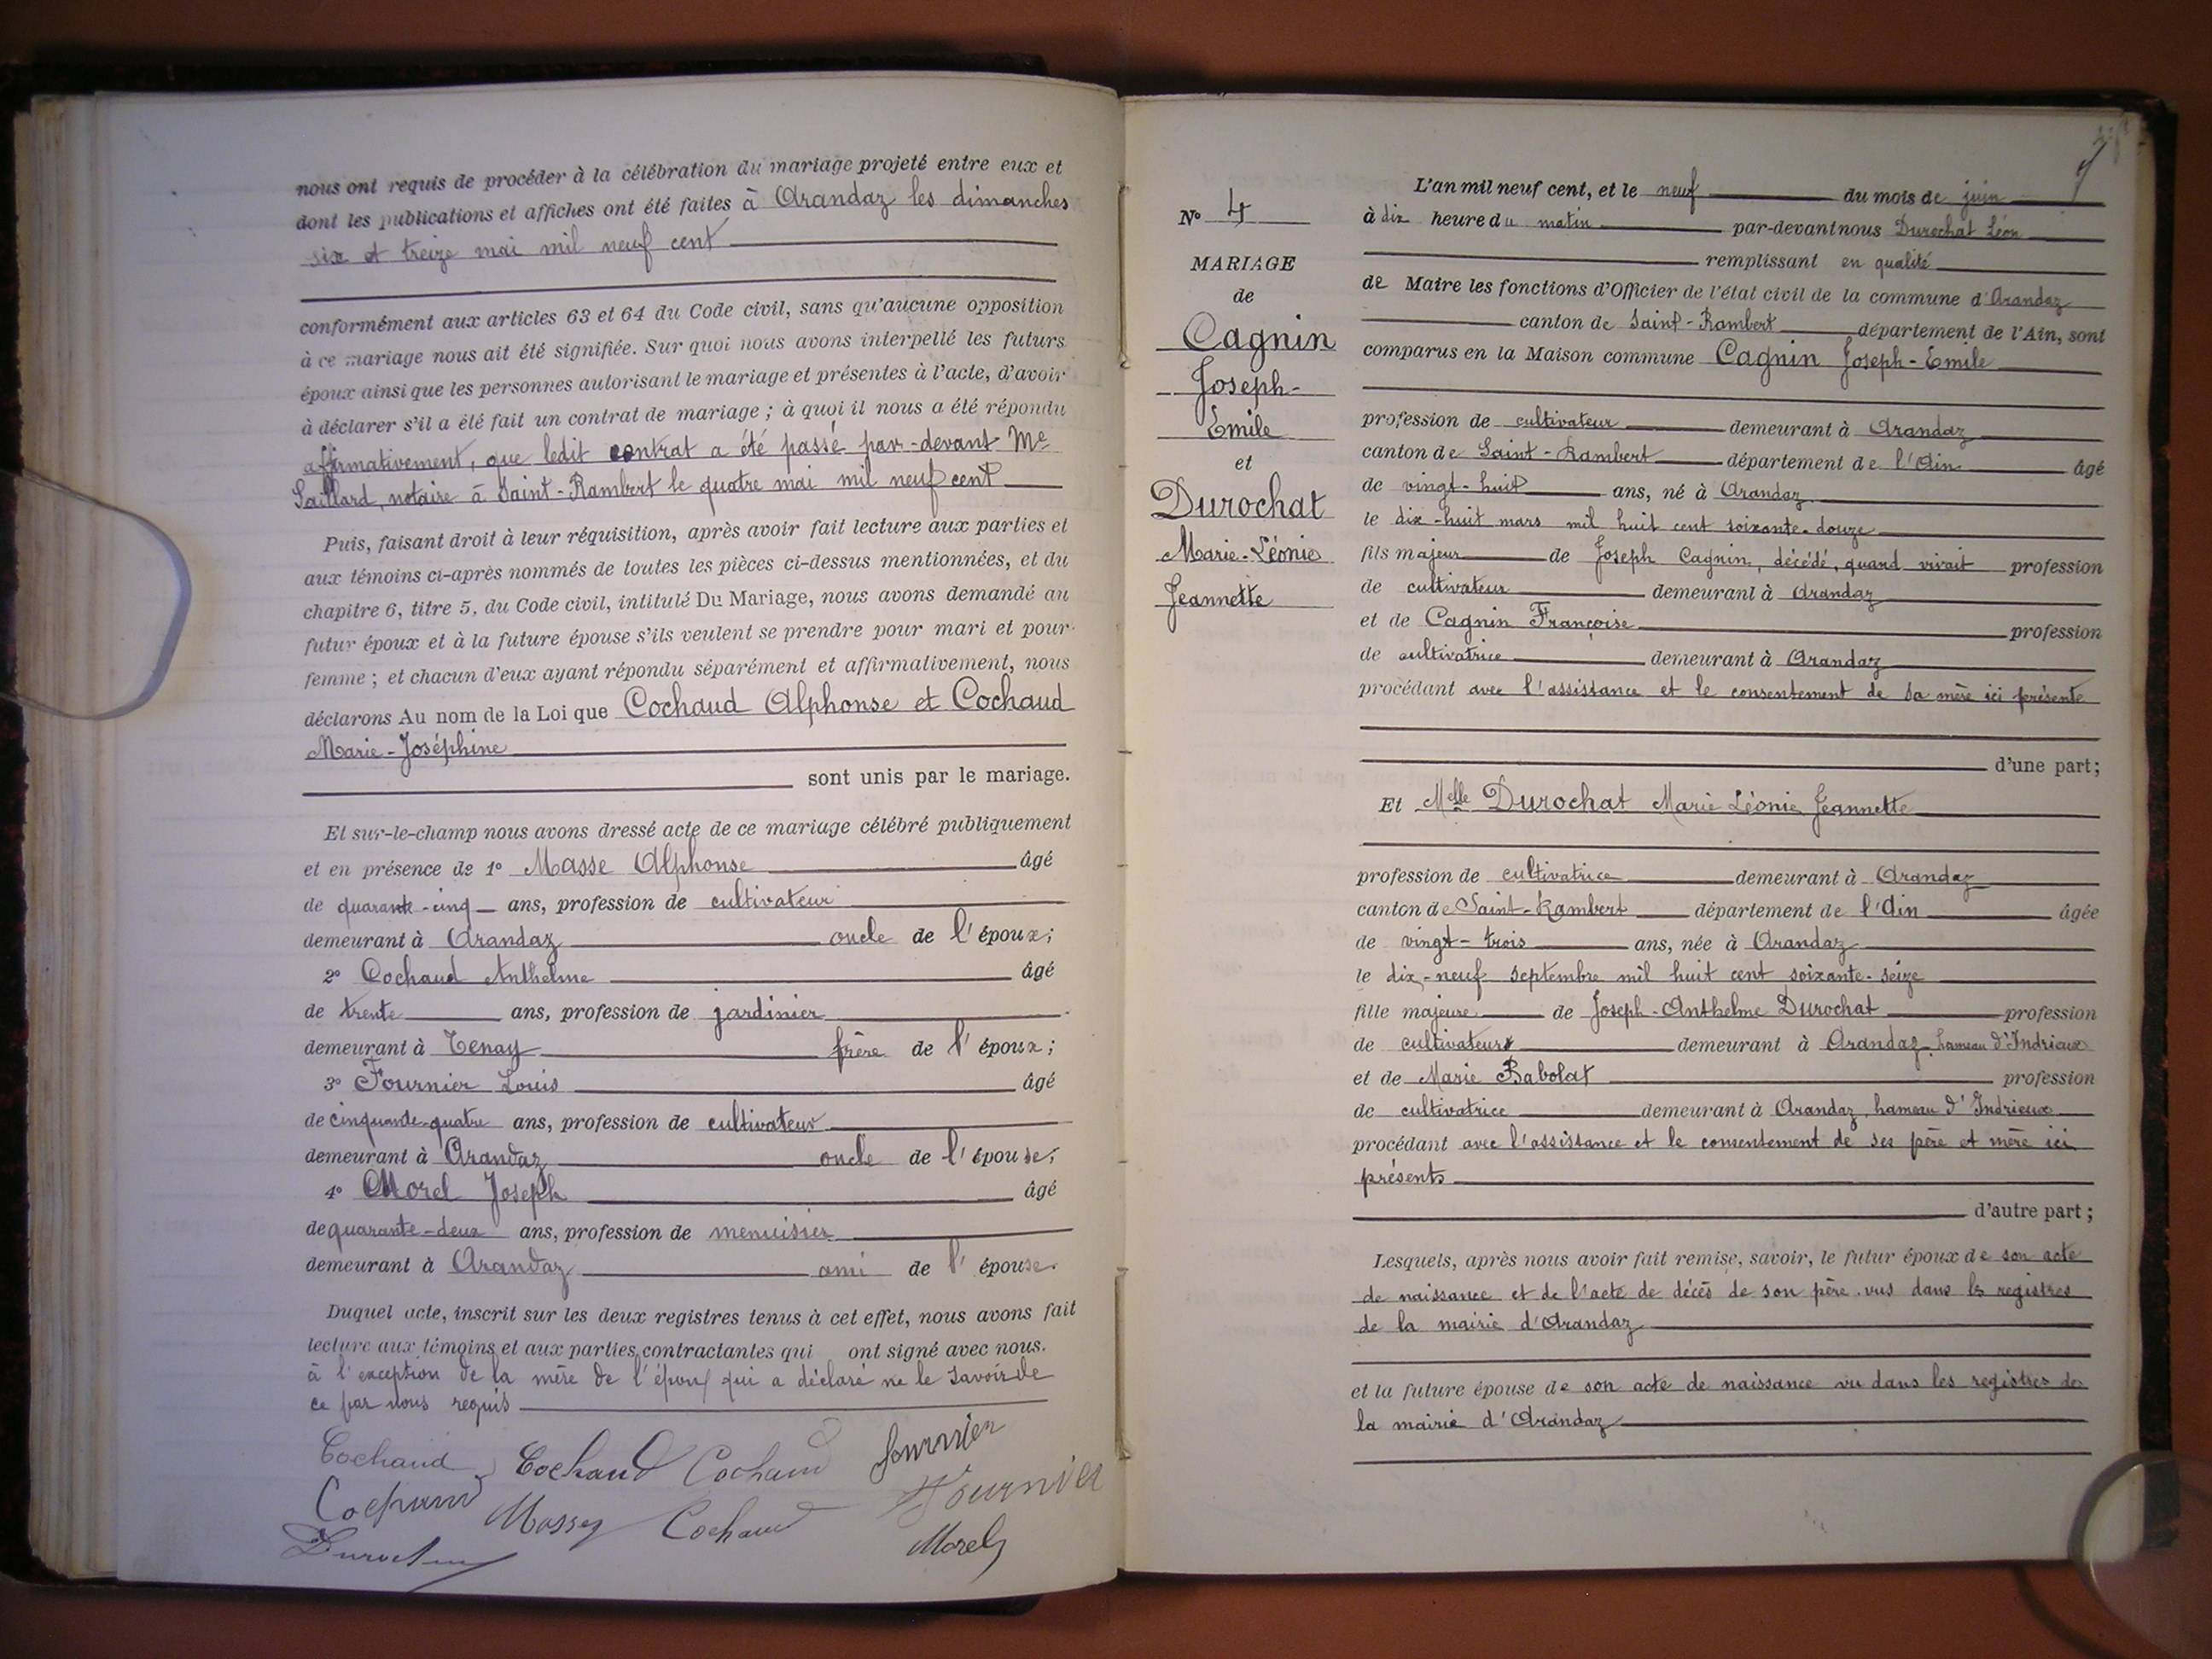 nous ont requis de procéder à la célébration du mariage projeté entre eux et
dont les publications et affiches ont été faites à Arandaz les dimanches
six et treize mai mil neuf cent
conformément aux articles 63 et 64 du Code civil, sans qu'aucune opposition
à ce mariage nous ait été signifiée. Sur quoi nous avons interpellé les futurs
époux ainsi que les personnes autorisant le mariage et présentes à l'acte, d'avoir
à déclarer s'il a été fait un contrat de mariage ; à quoi il nous a été répondu
affirmativement, que ledit contrat a été passé par-devant Me
Saillard, notaire à Saint-Rambert le quatre mai mil neuf cent
Puis, faisant droit à leur réquisition, après avoir fait lecture aux parties et
aux témoins ci-après nommés de toutes les pièces ci-dessus mentionnées, et du
chapitre 6, titre 5, du Code civil, intitulé Du Mariage, nous avons demandé au
futur époux et à la future épouse s'ils veulent se prendre pour mari et pour
femme ; et chacun d'eux ayant répondu séparément et affirmativement, nous
déclarons Au nom de la Loi que Cochaud Alphonse et Cochaud
Marie-Joséphine
sont unis par le mariage.
Et sur-le-champ nous avons dressé acte de ce mariage célébré publiquement
et en présence de 1º Masse Alphonse âgé
de quarante-cinq ans, profession de cultivateur
demeurant à Arandaz oncle de l'époux ;
2º Cochaud Anthelme âgé
de trente ans, profession de jardinier
demeurant à Tenay frère de l'époux ;
3º Fournier Louis âgé
de cinquante-quatre ans, profession de cultivateur
demeurant à Arandaz oncle de l'épouse ;
4º Morel Joseph âgé
de quarante-deux ans, profession de menuisier
demeurant à Arandaz ami de l'épouse.
Duquel acte, inscrit sur les deux registres tenus à cet effet, nous avons fait
lecture aux témoins et aux parties contractantes qui ont signé avec nous.
à l'exception de la mère de l'époux qui a déclaré ne le savoir de
ce par nous requis
Cochaud Cochaud Cochaud Fournier
Cochaud Masse Cochaud Fournier
Durochat Morel
Nº 4
MARIAGE
de
Cagnin
Joseph-
Emile
et
Durochat
Marie-Léonie
Jeannette
L'an mil neuf cent, et le neuf du mois de juin
à dix heure du matin par-devant nous Durochat Léon
remplissant en qualité
de Maire les fonctions d'Officier de l'état civil de la commune d'Arandaz
canton de Saint-Rambert département de l'Ain, sont
comparus en la Maison commune Cagnin Joseph-Emile
profession de cultivateur demeurant à Arandaz
canton de Saint-Rambert département de l'Ain âgé
de vingt-huit ans, né à Arandaz
le dix-huit mars mil huit cent soixante-douze
fils majeur de Joseph Cagnin, décédé, quand vivait profession
de cultivateur demeurant à Arandaz
et de Cagnin Françoise profession
de cultivatrice demeurant à Arandaz
procédant avec l'assistance et le consentement de sa mère ici présente
d'une part ;
Et Melle Durochat Marie Léonie Jeannette
profession de cultivatrice demeurant à Arandaz
canton de Saint-Rambert département de l'Ain âgée
de vingt-trois ans, née à Arandaz
le dix-neuf septembre mil huit cent soixante-seize
fille majeure de Joseph-Anthelme Durochat profession
de cultivateur demeurant à Arandaz, hameau d'Indrieux
et de Marie Babolat profession
de cultivatrice demeurant à Arandaz, hameau d'Indrieux
procédant avec l'assistance et le consentement de ses père et mère ici
présents
d'autre part ;
Lesquels, après nous avoir fait remise, savoir, le futur époux de son acte
de naissance et de l'acte de décès de son père vus dans les registres
de la mairie d'Arandaz
et la future épouse de son acte de naissance vu dans les registres de
la mairie d'Arandaz